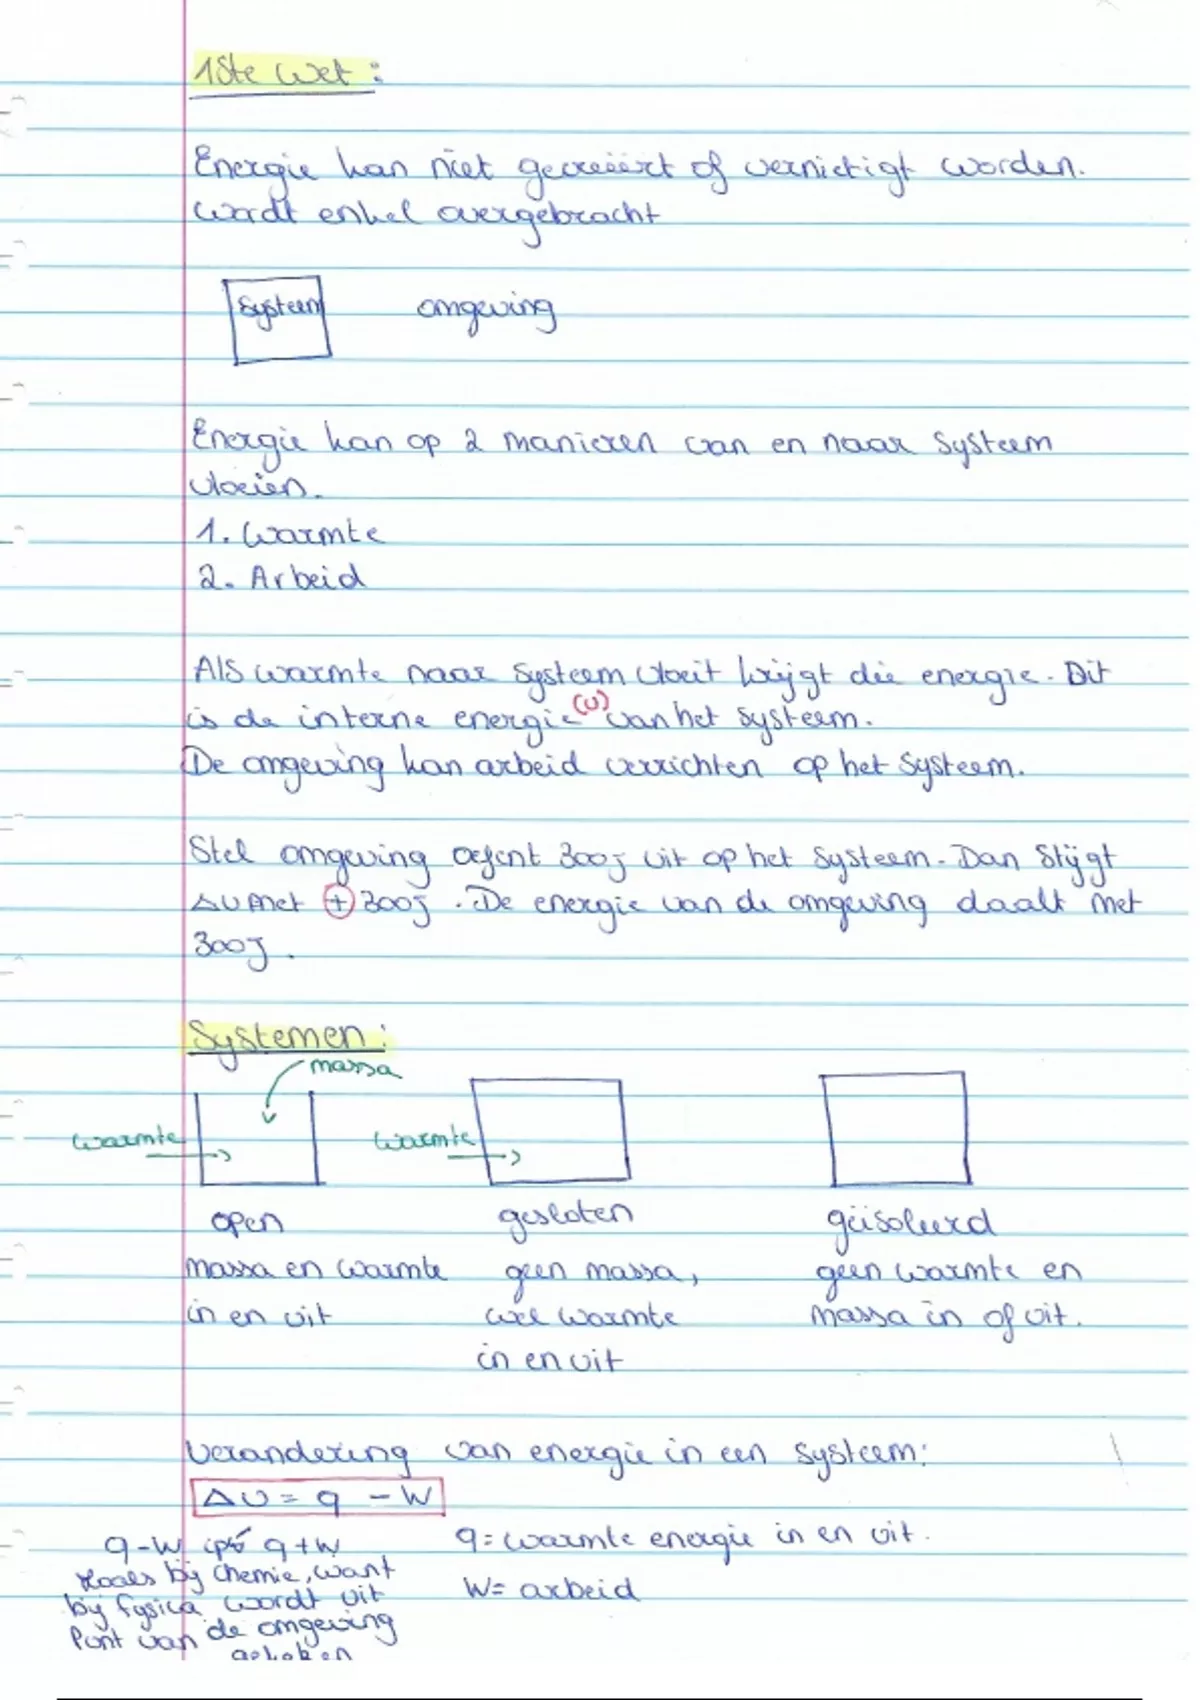 1Ste Wet:
Energie kan niet gecreëert of vernietigt worden.
wordt enkel overgebracht
Systeem omgeving
Energie kan op 2 manieren van en naar systeem
vloeien.
1. Warmte
2. Arbeid
Als warmte naar systeem vloeit krijgt die energie. Dit
is de interne energie (U) van het systeem.
De omgeving kan arbeid verrichten op het systeem.
Stel omgeving oefent 300J uit op het systeem. Dan stijgt
ΔU met + 300J. De energie van de omgeving daalt met
300J.
Systemen:
massa
warmte warmte
open gesloten geïsoleerd
massa en warmte geen massa, geen warmte en
in en uit wel warmte massa in of uit.
in en uit
Verandering van energie in een systeem:
ΔU = q - W
q-W ipv q+W q = warmte energie in en uit.
zoals bij chemie, want W = arbeid
bij fysica wordt uit
punt van de omgeving
gekeken